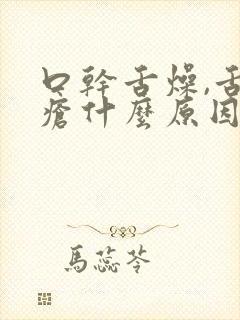 口幹舌燥,舌
瘡什麼原因
馬蕊苓